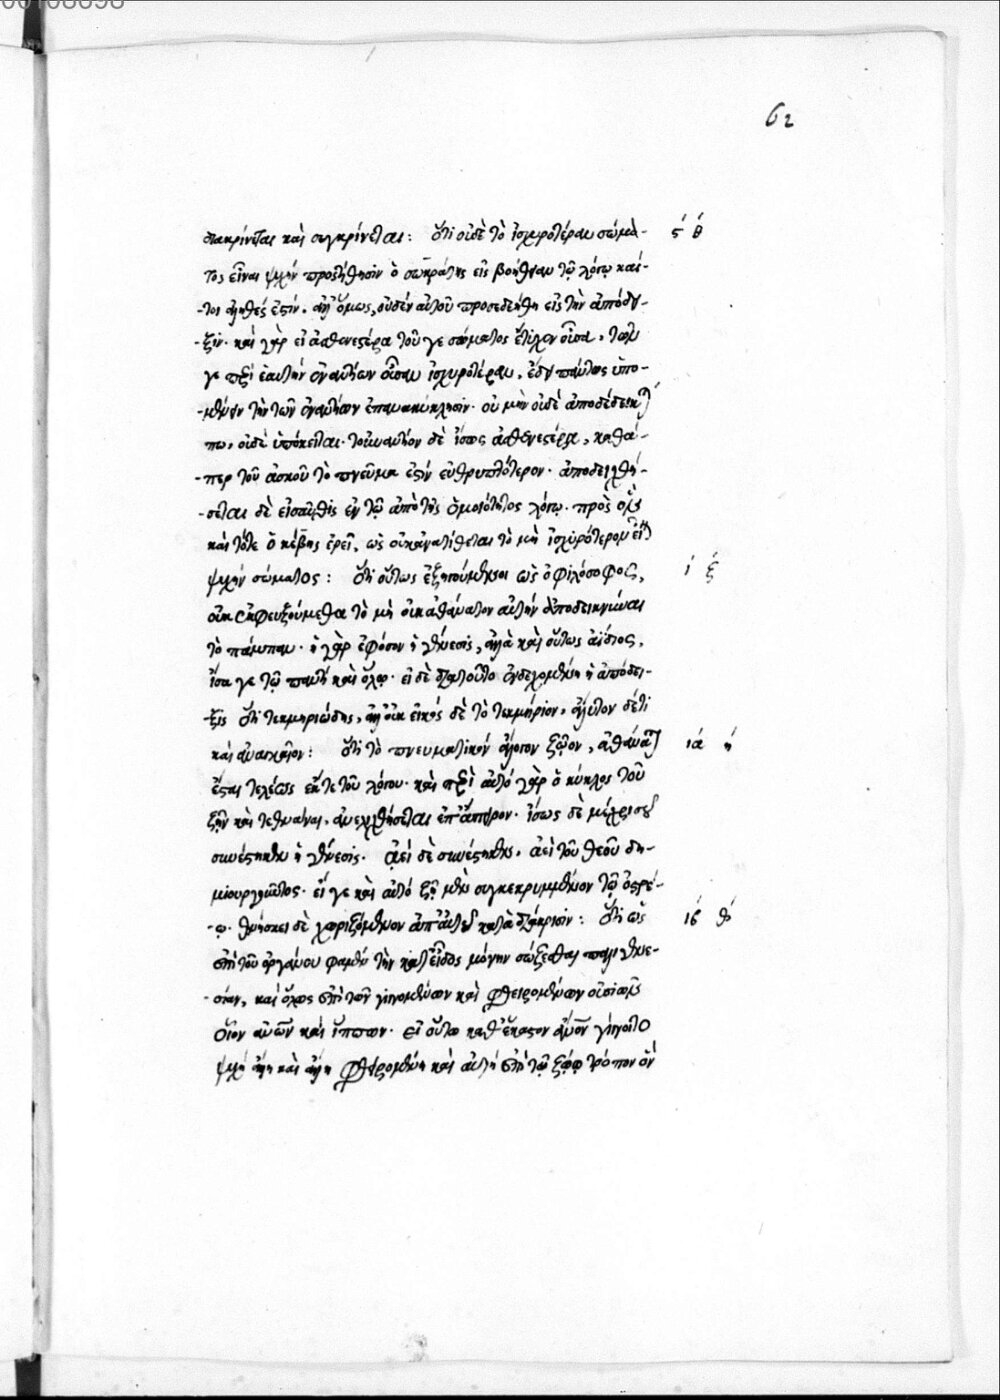 62
διακρίνεται καὶ συγκρίνεται: ὅτι οὐδὲ τὸ ἰσχυροτέραν σώμα-
τος εἶναι ψυχὴν προσετίθησιν ὁ σωκράτης εἰς βοήθειαν τῷ λόγῳ καί-
-τοι ἀληθές ἐστιν. ἀλλ' ὅμως, οὐδὲν αὐτοῦ προσεδεήθη εἰς τὴν ἀπόδει-
-ξιν. καὶ γὰρ εἰ ἀσθενεστέρα τοῦ γε σώματος ἐτύγχανεν οὖσα, τῶν
γε περὶ ἑαυτὴν ἐναντίων οὖσαν ἰσχυροτέραν, ἔδει πάντως ὑπο-
-μένειν τὴν τῶν ἐναντίων ἐπανακύκλησιν. οὐ μὴν οὐδὲ ἀποδέδεικται
πω, οὐδὲ ὑπόκειται. τοὐναντίον δὲ ἴσως ἀσθενεστέρα, καθά-
-περ τοῦ ἀσκοῦ τὸ πνεῦμα ἐστὶν εὐθρυπτότερον. ἀποδειχθή-
-σεται δὲ εἰσαῦθις ἐν τῷ ἀπὸ τῆς ὁμοιότητος λόγῳ. πρὸς
καὶ τότε ὁ κέβης ἐρεῖ, ὡς οὐκ ἀνατίθεται τὸ μὴ ἰσχυρότερον εἶναι
ψυχὴν σώματος: ὅτι οὕτως ἐξηγούμενοι ὡς ὁ φιλόσοφος,
οὐκ ἐκφευξούμεθα τὸ μὴ οὐκ ἀθάνατον αὐτὴν ἀποδεικνύναι
τὸ πάμπαν. ἡ γὰρ ἐφόσον ἡ γένεσις, ἀλλὰ καὶ οὕτως ἀΐδιος,
ἴσα γε τῷ παντὶ καὶ ὅλῳ. εἰ δὲ διατοῦτο ἐνδεχομένη ἡ ἀπόδει-
-ξις ὅτι τεκμηριώδης, ἀλλ' οὐκ εἰκός δὲ τὸ τεκμήριον, ἄλυτον δέ τι
καὶ ἀναγκαῖον: ὅτι τὸ πνευματικὸν ἄλογον ζῷον, ἀθάνατον
ἔσται τελέως ἔκ τε τοῦ λόγου. καὶ περὶ αὐτὸ γὰρ ὁ κύκλος τοῦ
ζῆν καὶ τεθνάναι, ἀνελιχθήσεται ἐπ' ἄπειρον. ἴσως δὲ μέχρις οὗ
συνέστηκεν ἡ γένεσις. ἀεὶ δὲ συνέστηκε, ἀεὶ τοῦ θεοῦ δη-
μιουργοῦντος. εἴ γε καὶ αὐτὸ ζῇ μὲν συγκεκριμμένον τῷ ὀστρέ-
-ῳ. θνήσκει δὲ χωριζόμενον ἀπ' αὐτοῦ κατὰ διάκρισιν: ὅτι ὡς
ἐπὶ τοῦ ὀργάνου φαμὲν τὴν κατ' εἶδος μόνην σώζεσθαι παλιγγενε-
-σίαν, καὶ ὅλως ἐπὶ τῶν γιγνομένων καὶ φθειρομένων οὐσιῶν
οἷον καὶ ἵππων. εἰ οὕτω καθ' ἕκαστον γίγνοιτο
ψυχὴ ἄλλη καὶ ἄλλη φθειρομένη καὶ αὐτὴ ἐπὶ τῷ ζῴῳ τρόπον ὃν